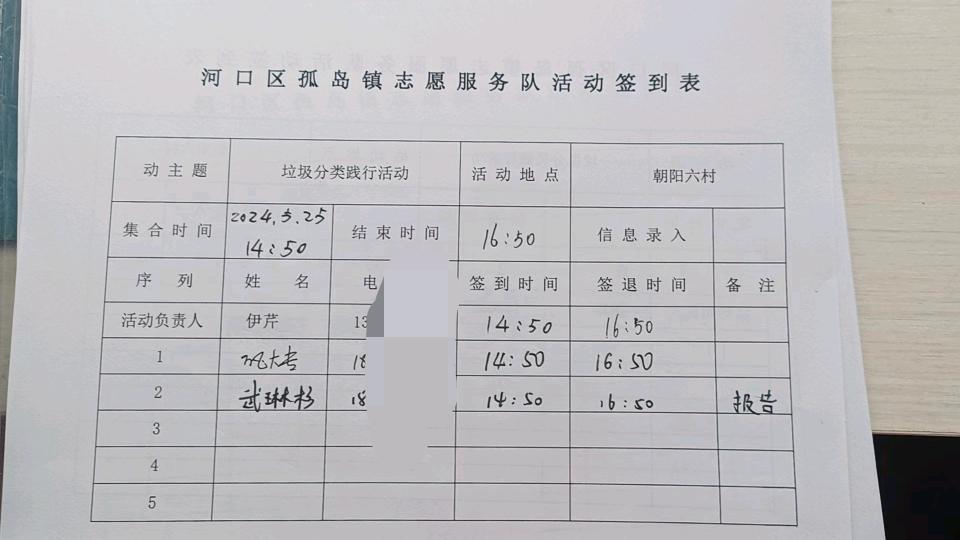 河口区孤岛镇志愿服务队活动签到表
动主题 垃圾分类践行活动 活动地点 朝阳六村
集合时间 2024.5.25 14:50 结束时间 16:50 信息录入
序列 姓名 电 签到时间 签退时间 备注
活动负责人 伊芹 13 14:50 16:50
1 18 14:50 16:50
2 武琳杉 18 14:50 16:50 报告
3
4
5